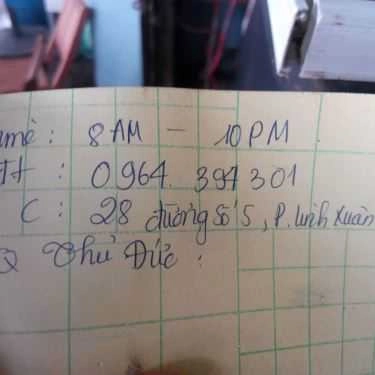 ime: 8 AM - 10 PM
ĐT: 0964. 394 301
C: 28 đường Số 5, P. Linh Xuân
Q Thủ Đức: